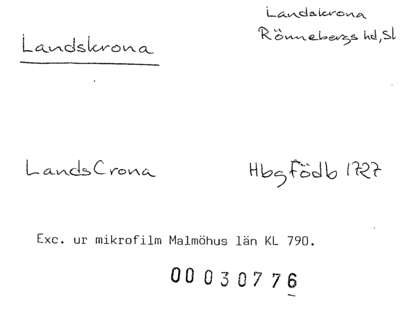 Landskrona
Landskrona
Rönnebergs hd, Sk
LandsCrona
Hbg Födb 1727
Exc. ur mikrofilm Malmöhus län KL 790.
00030776